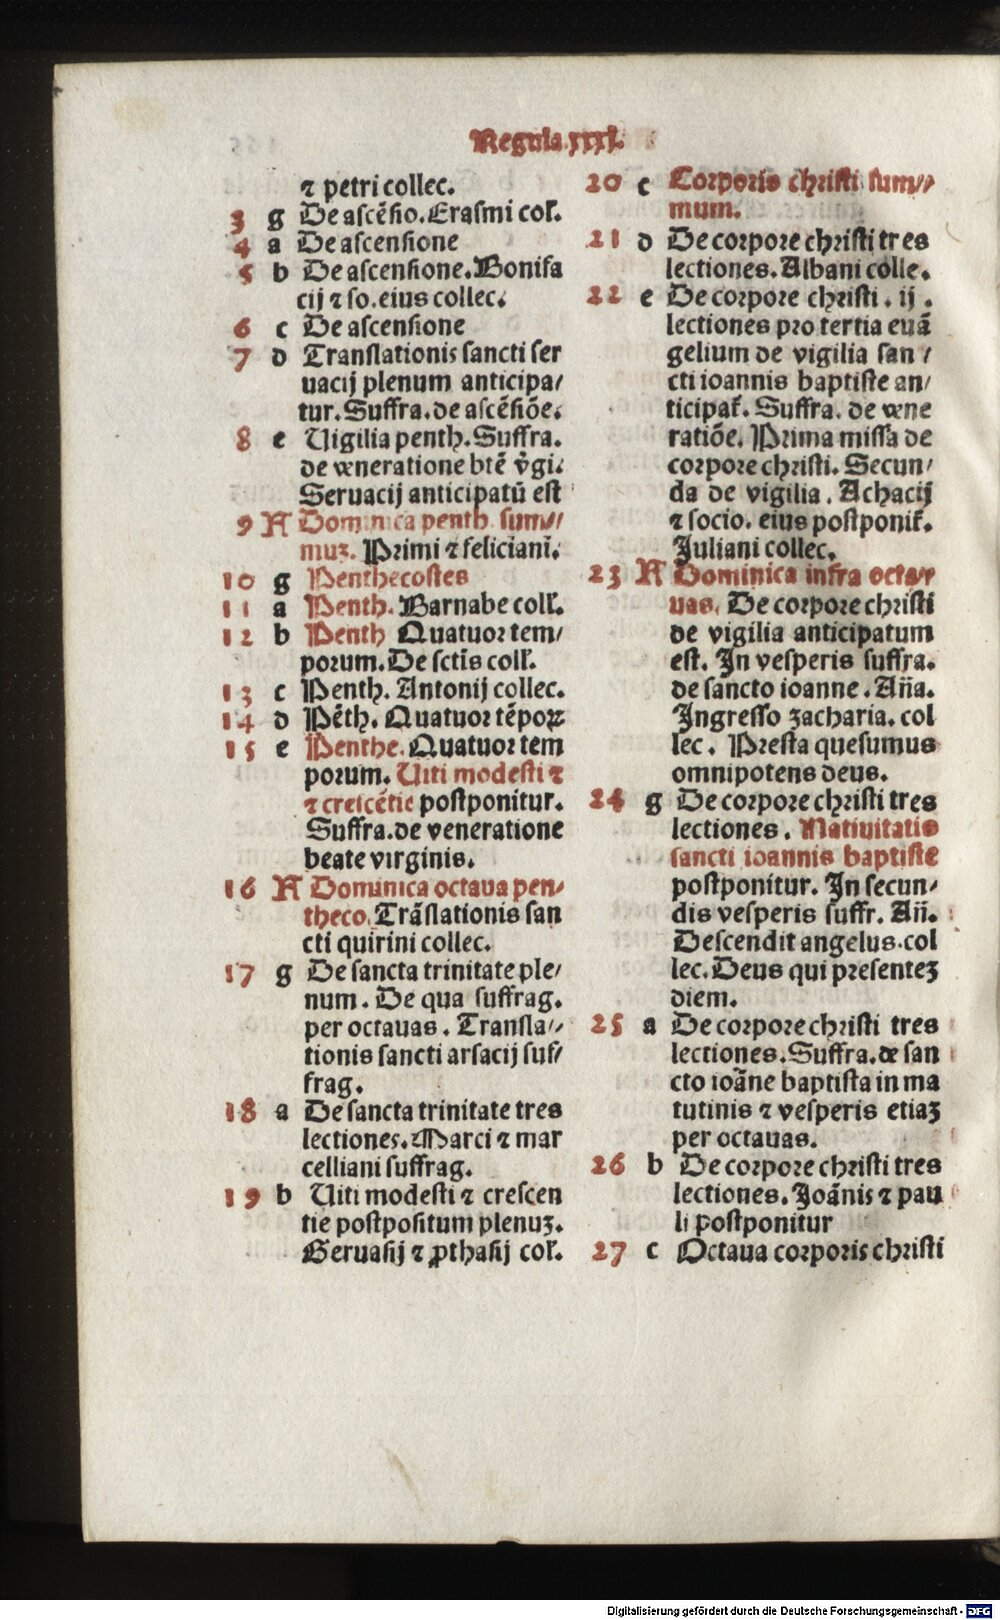 Regula.xxxi.
⁊ petri collec.
3 g De ascēsio. Erasmi col̄.
4 a De ascensione
5 b De ascensione. Bonifa
cij ⁊ so. eius collec.
6 c De ascensione
7 d Translationis sancti ser
uacij plenum anticipa/
tur. Suffra. de ascēsiōe.
8 e Uigilia penth. Suffra.
de veneratione btē v̄gi.
Seruacij anticipatū est
9 A Dominica penth. sum//
muʒ. Primi ⁊ feliciani.
10 g Penthecostes
11 a Penth. Barnabe coll̄.
12 b Penth Quatuor tem/
porum. De sctīs coll̄.
13 c Penth. Antonij collec.
14 d Pēth. Quatuor tēpoꝝ
15 e Penthe. Quatuor tem
porum. Uiti modesti ⁊
⁊ crescētie postponitur.
Suffra. de veneratione
beate virginis.
16 A Dominica octaua pen/
theco. Trāslationis san
cti quirini collec.
17 g De sancta trinitate ple/
num. De qua suffrag.
per octauas. Transla//
tionis sancti arsacij suf/
frag.
18 a De sancta trinitate tres
lectiones. Marci ⁊ mar
celliani suffrag.
19 b Uiti modesti ⁊ crescen
tie postpositum plenuʒ.
Geruasij ⁊ ꝓthasij col̄.
20 c Corporis christi sum//
mum.
21 d De corpore christi tres
lectiones. Albani colle.
22 e De corpore christi. ij.
lectiones pro tertia euā
gelium de vigilia san/
cti ioannis baptiste an/
ticipat̄. Suffra. de vene
ratiōe. Prima missa de
corpore christi. Secun/
da de vigilia. Achacij
⁊ socio. eius postponit̄.
Juliani collec.
23 A Dominica infra octa/
uas. De corpore christi
de vigilia anticipatum
est. In vesperis suffra.
de sancto ioanne. An̄a.
Ingresso zacharia. col
lec. Presta quesumus
omnipotens deus.
24 g De corpore christi tres
lectiones. Natiuitatis
sancti ioannis baptiste
postponitur. In secun/
dis vesperis suffr. An̄.
Descendit angelus. col
lec. Deus qui presenteʒ
diem.
25 a De corpore christi tres
lectiones. Suffra. de san
cto ioāne baptista in ma
tutinis ⁊ vesperis etiaʒ
per octauas.
26 b De corpore christi tres
lectiones. Joānis ⁊ pau
li postponitur
27 c Octaua corporis christi
Digitalisierung gefördert durch die Deutsche Forschungsgemeinschaft - DFG